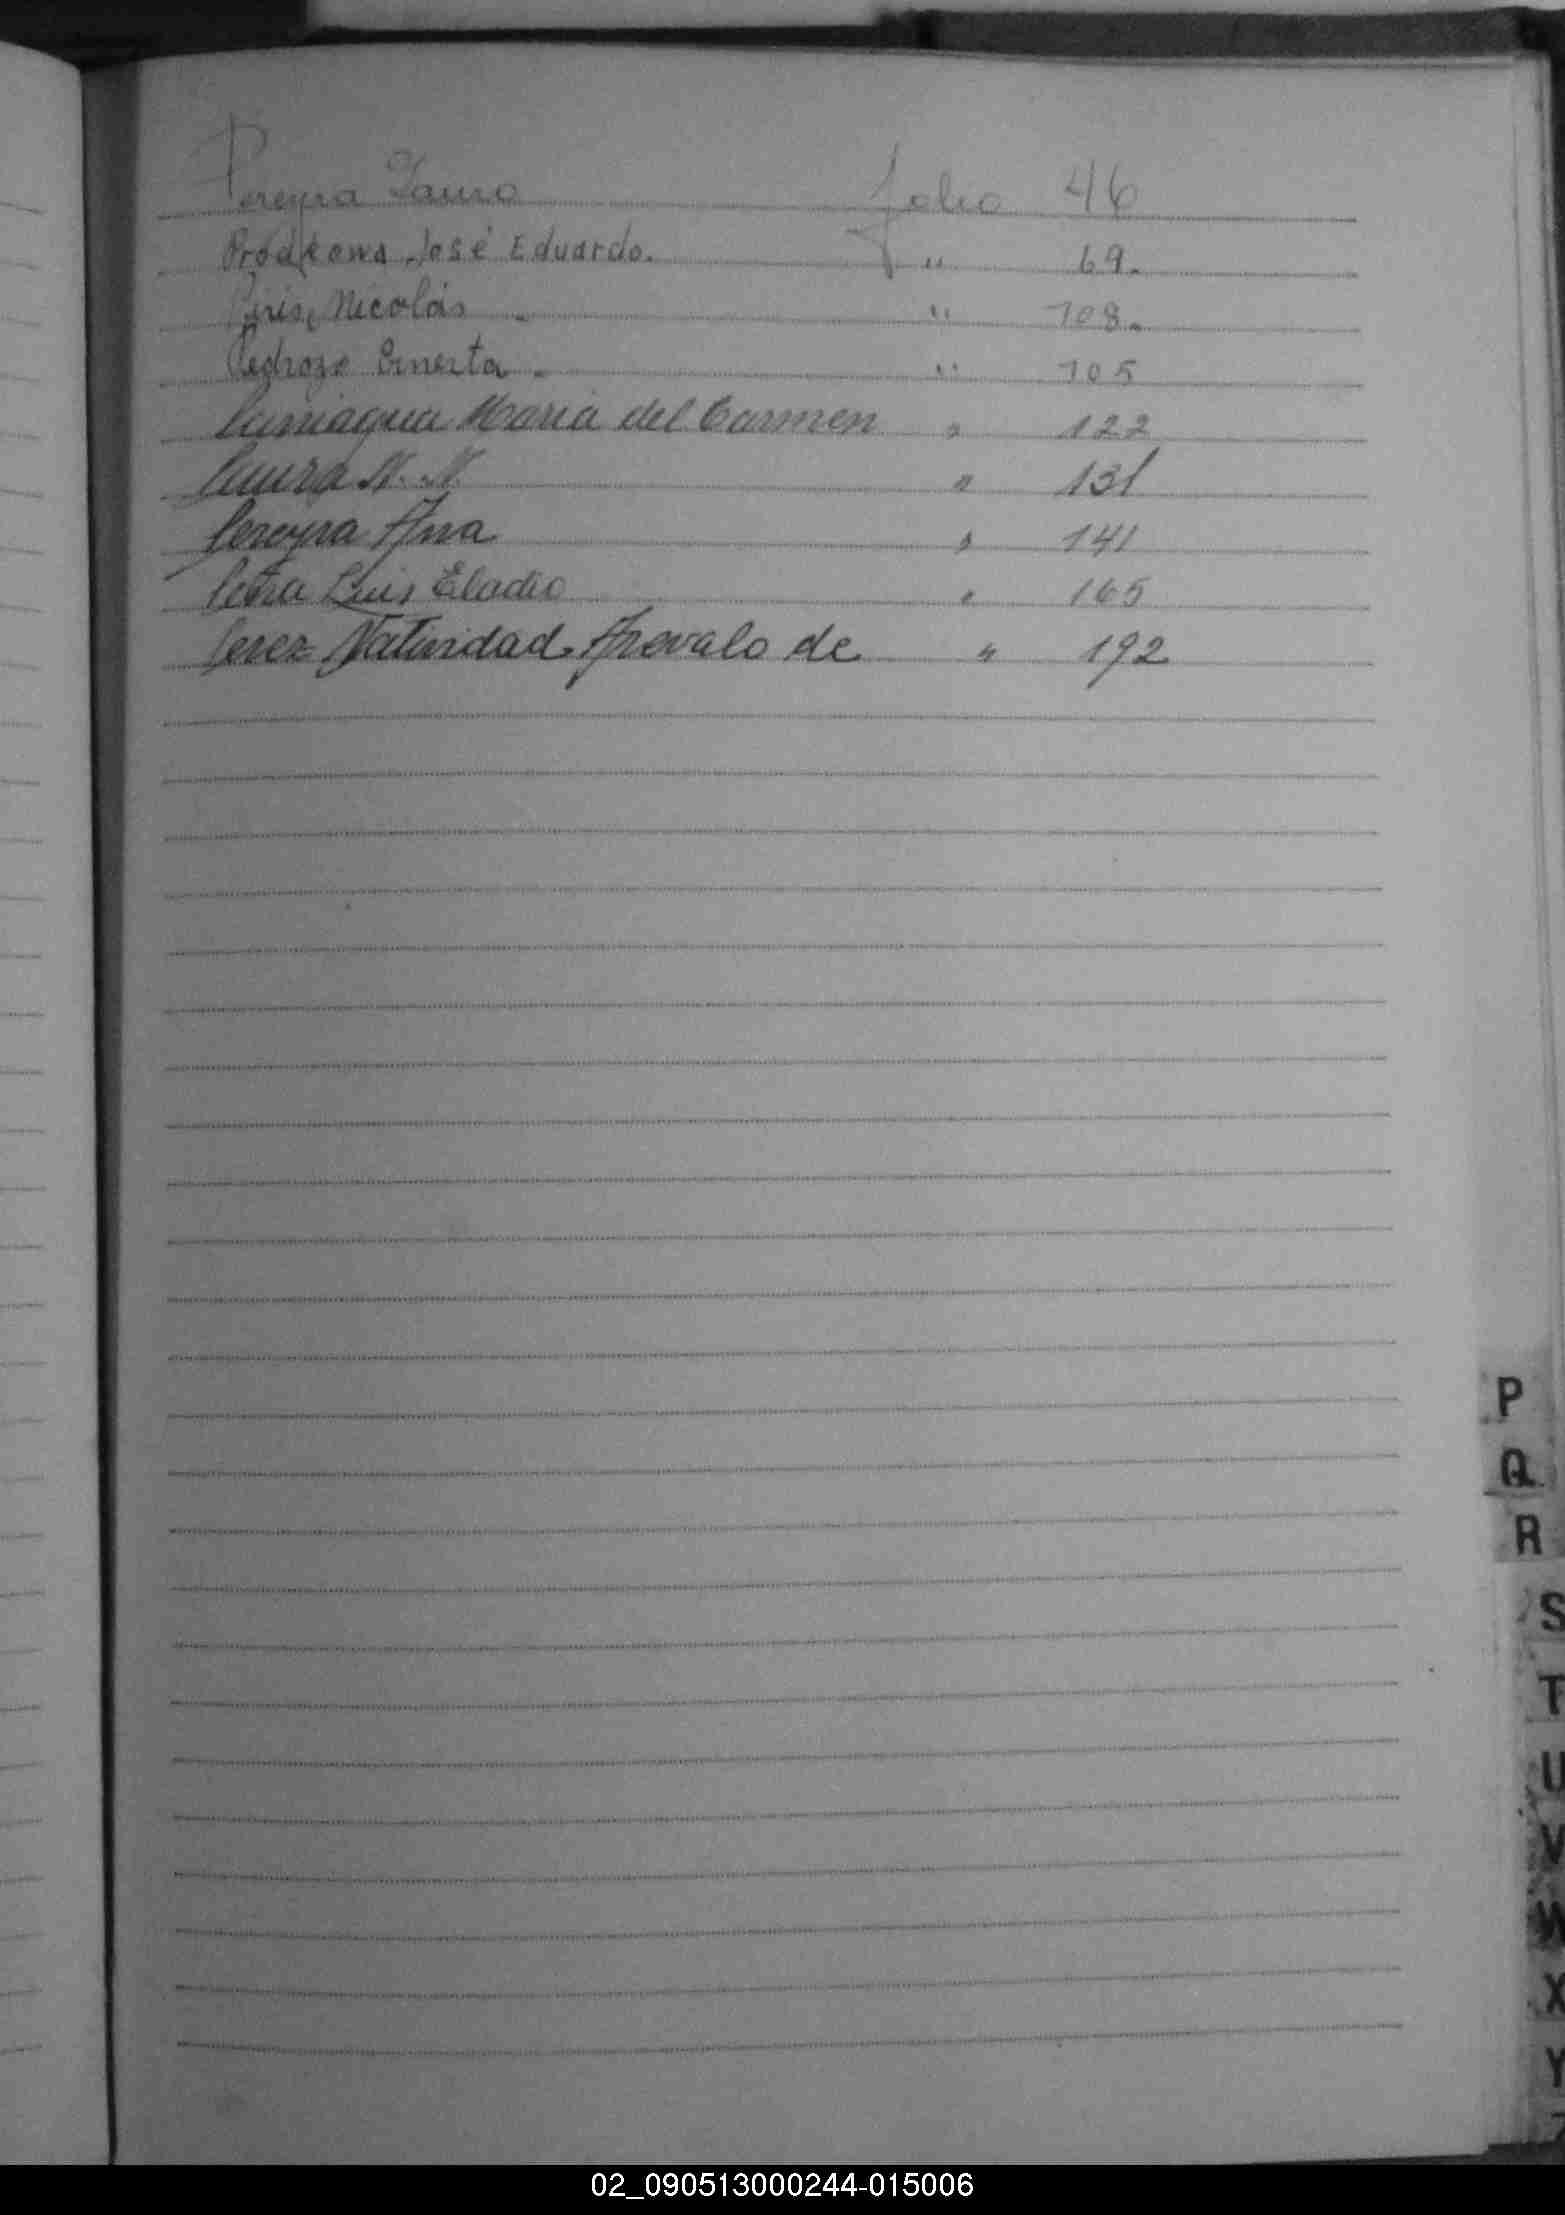 Pereyra Lauro folio 46
José Eduardo. " 69.
Piris, Nicolás. " 108.
Pedrozo Ernesta. " 105
Paniagua Maria del Carmen " 122
N. N. " 131
Pereyra Ana " 141
Peña Luis Eladio " 165
Perez Natividad Arevalo de " 192
P
Q
R
S
T
U
V
W
X
Y
Z
02_090513000244-015006